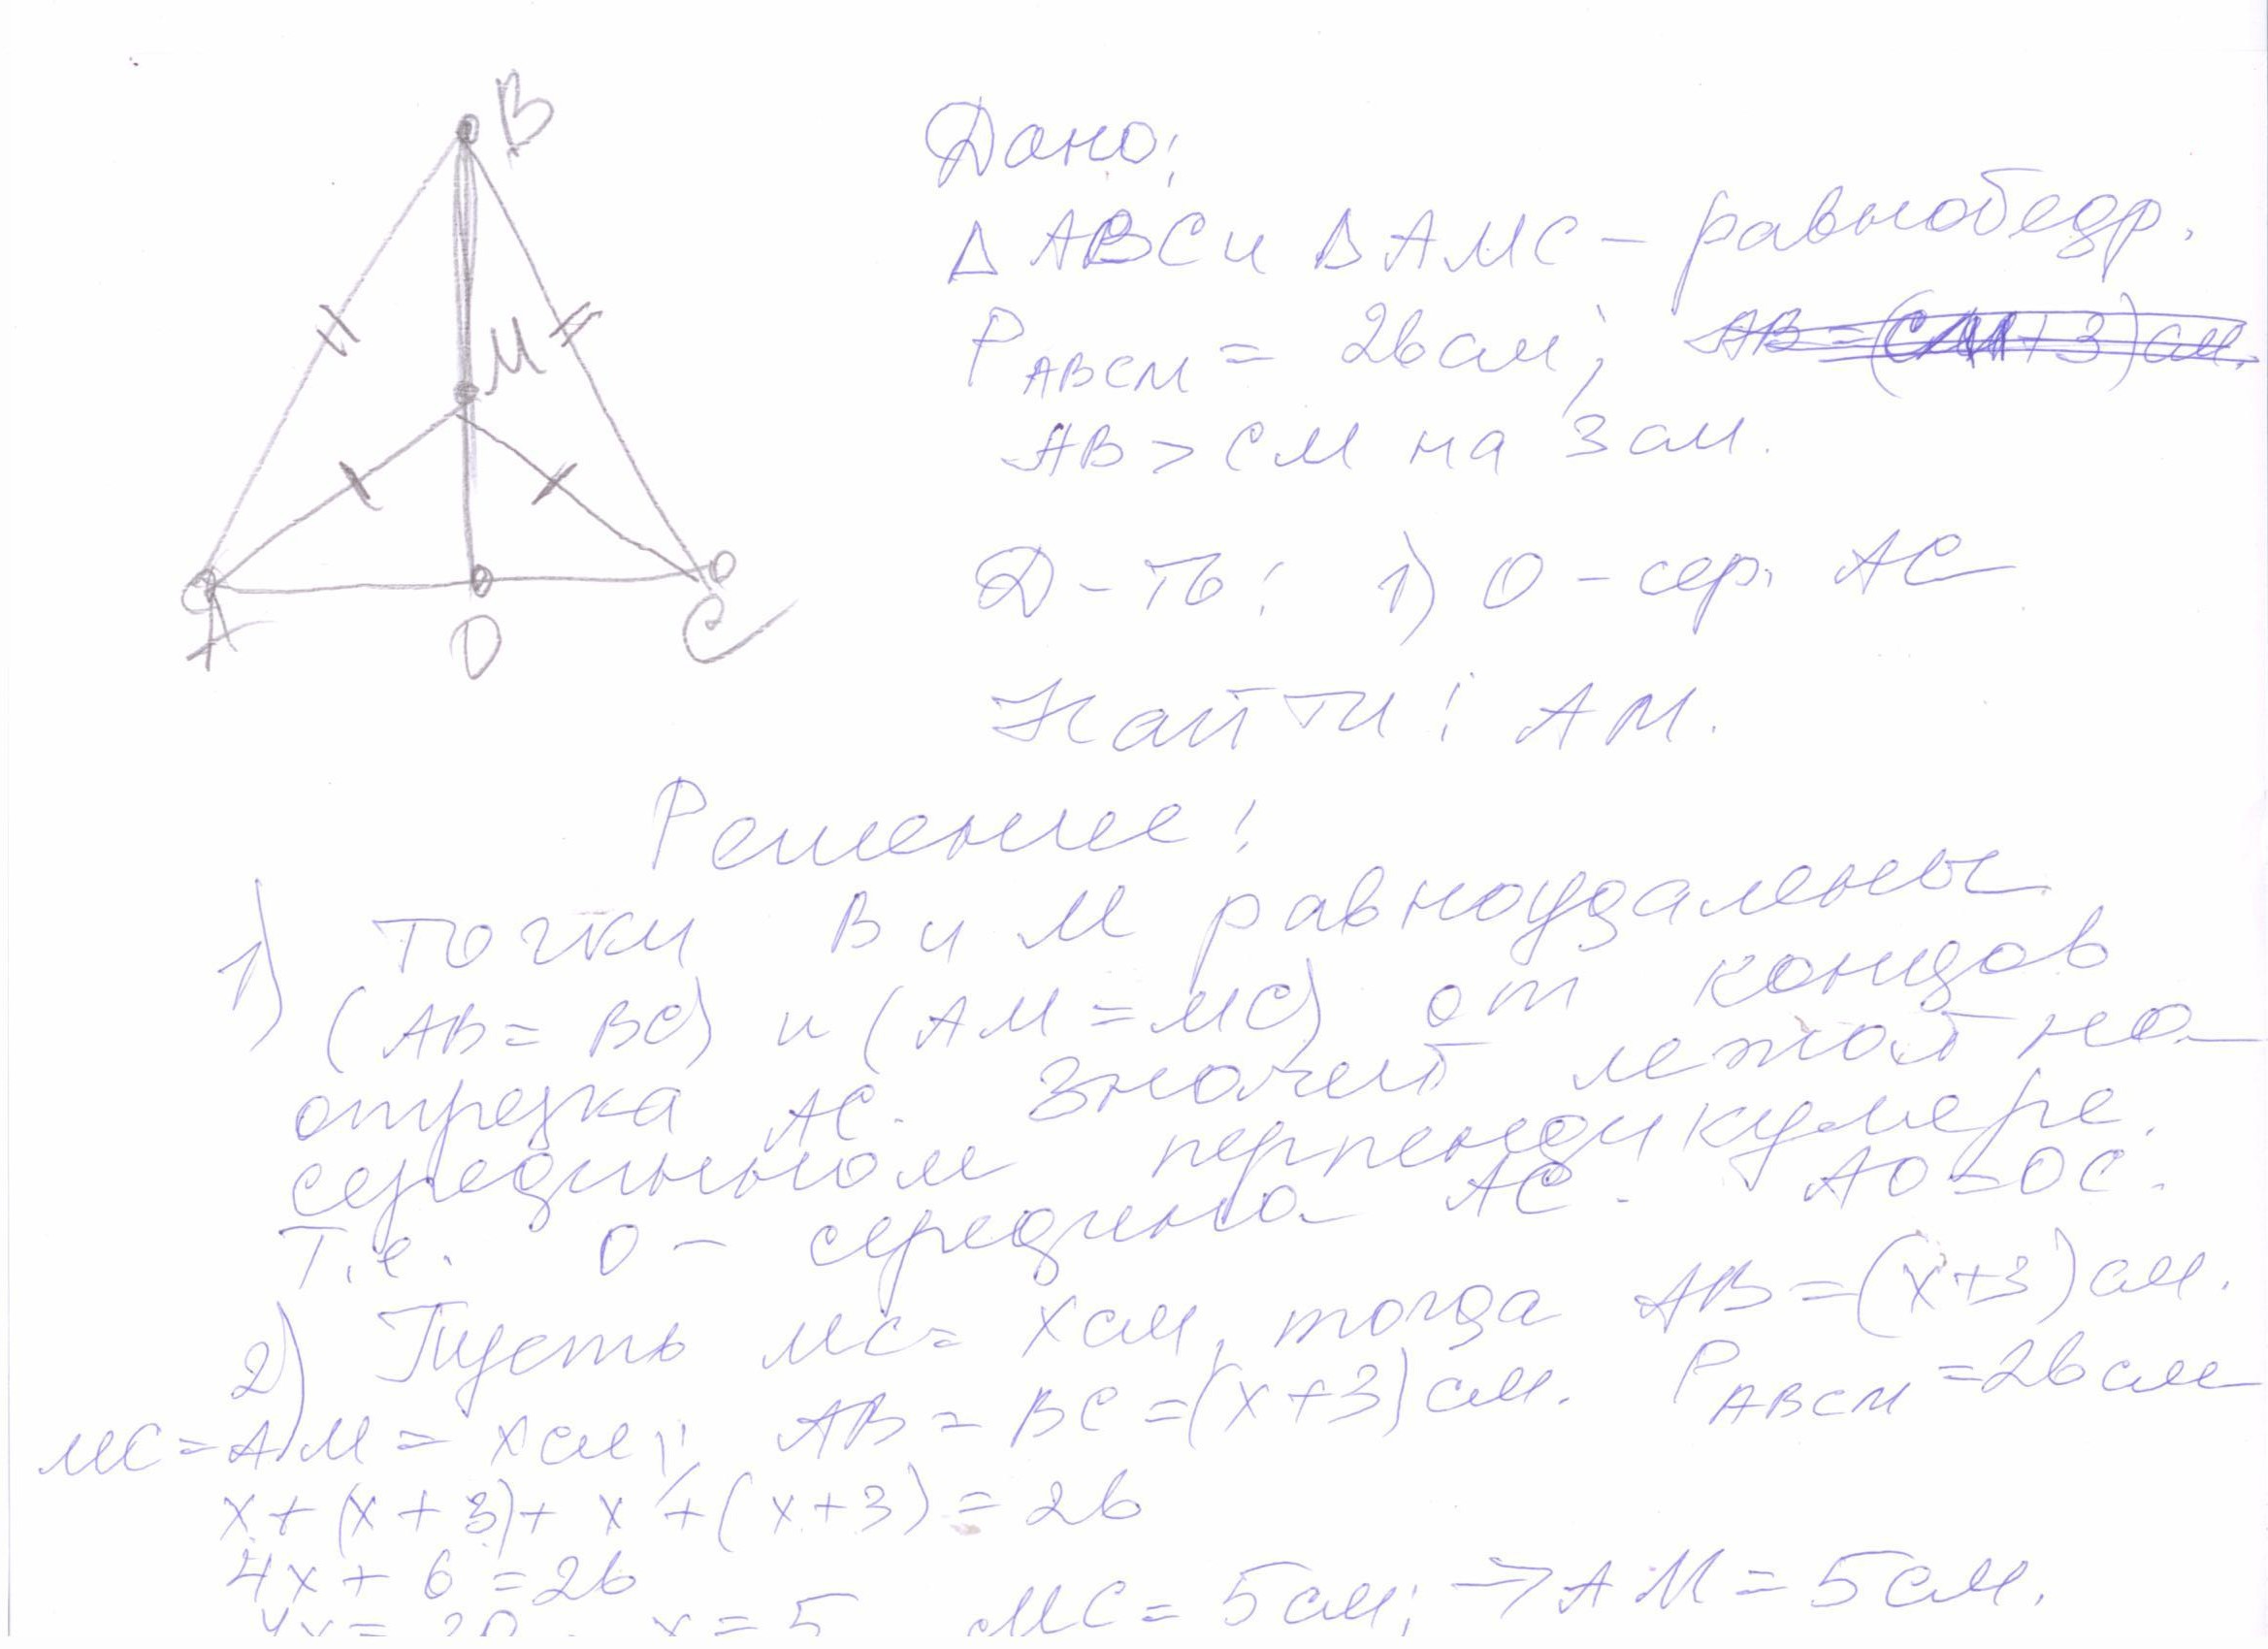 B
M
A
O
C
Дано:
Δ ABC и Δ AMC – равнобедр.
P ABCM = 26 см;
AB > CM на 3 см.
Д-ть: 1) O – сер. AC
Найти: AM.
Решение:
1) Точки B и M равноудалены
(AB = BC) и (AM = MC) от концов
отрезка AC. Значит лежат на
серединном перпендикуляре.
Т.е. O – середина AC. AO = OC.
2) Пусть MC = x см, тогда AB = (x+3) см.
MC = AM = x см; AB = BC = (x+3) см. P ABCM = 26 см
x + (x + 3) + x + (x+3) = 26
4x + 6 = 26
4x = 20. x = 5 MC = 5 см; → AM = 5 см.